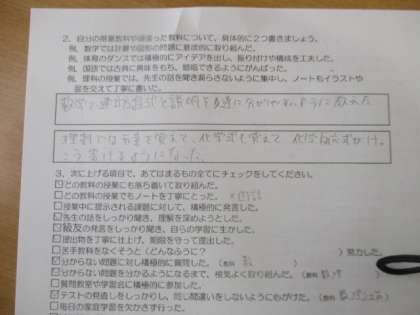 2. 自分の得意教科や頑張った教科について、具体的に2つ書きましょう。
例、数学では計算や図形の問題に意欲的に取り組んだ。
例、体育のダンスでは積極的にアイデアを出し、振り付けや構成を工夫した。
例、国語では古典に興味をもち、暗唱できるようにがんばった。
例、理科の授業では、先生の話を聞き漏らさないように集中し、ノートもイラストや
図を交えて丁寧に書いた。
数学で連立方程式と説明を友達に分かりやすいように教えた
理科では元素を覚えて、化学式も覚えて 化学反応式がけっ
こう書けるようになった。
3. 次に上げる項目で、あてはまるもの全てにチェックをしてください。
どの教科の授業にも落ち着いて取り組んだ。
どの教科でもノートを丁寧にとった。
授業中に提示される課題に対して、積極的に発言した。
先生の話をしっかり聞き、理解を深めようとした。
級友の発言をしっかり聞き、自らの学習に生かした。
提出物を丁寧に仕上げ、期限を守って提出した。
苦手教科をなくそうと(どんなふうに? )努力した。
分からない問題に対し積極的に質問した。(教科 数 )
分からない問題を分かるようになるまで、根気よく取り組んだ。(教科 数 )
質問教室や学習会に積極的に参加した。
テストの見直しをしっかりし、同じ間違いをしないように心がけた。(教科 )
毎日の家庭学習を欠かさず行った。